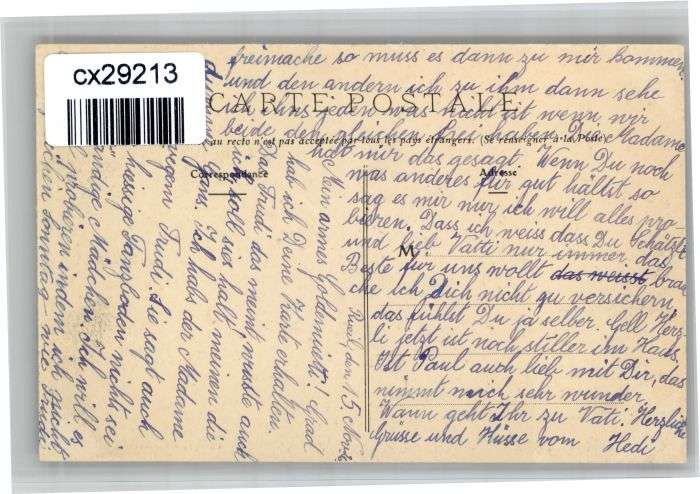 cx29213
CARTE POSTALE
au recto n'est pas acceptée par tous les pays étrangers. (Se renseigner à la Poste
Correspondance
Adresse
M
den 15. Nov.
Mein armes Goldmuetti! Grad
hab ich Deine Karte erhalten.
Das Trudi das meint wüsste auch
sie soll sies halt meinen die
Gans. Ich habs der Madame
wegen Trudi. Sie sagt auch
Tanzboden nicht sei
junge Mädchen. Ich will es
probieren indem ich zuerst
Sonntag nie
freimache so muss es dann zu mir kommen
und den andern ich zu ihm dann sehe
ich ihns jeden was nicht ist wenn wir
beide den gleichen frei haben. Die Madame
hat mir das gesagt. Wenn Du noch
was anderes für gut hältst so
sag es mir nur ich will alles pro-
bieren. Dass ich weiss dass Du
und lieb Vatti nur immer das
Beste für uns wollt das weisst brau
che ich Dich nicht zu versichern
das fühlst Du ja selber. Gell Herz-
li jetzt ist noch stiller im Haus.
Ist Paul auch lieb mit Dir, das
nimmt mich sehr wunder
Wann geht Ihr zu Vati. Herzliche
Grüsse und Küsse vom Hedi